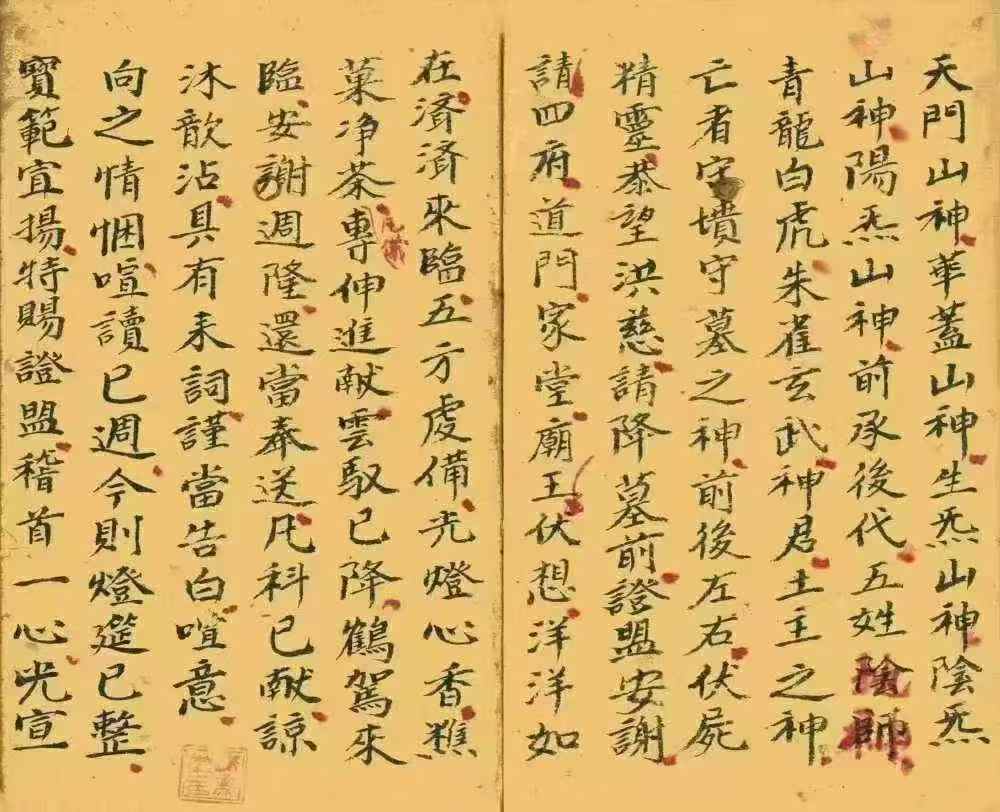 天門山神華蓋山神生炁山神陰炁
山神陽炁山神前承後代五姓陰師
青龍白虎朱雀玄武神君土主之神
亡者守墳守墓之神前後左右伏屍
精靈恭望洪慈請降墓前證盟安謝
請四府道門家堂廟王伏想洋洋如
在濟濟來臨五方虔備光燈心香樵
菓净茶專伸進献雲馭已降鶴駕來
凡儀
臨安謝週隆還當奉送凡科已献諒
沐歆沾具有來詞謹當告白喧意
向之情悃喧讀已週今則燈筵已整
寶範宜揚特賜證盟稽首一心光宣